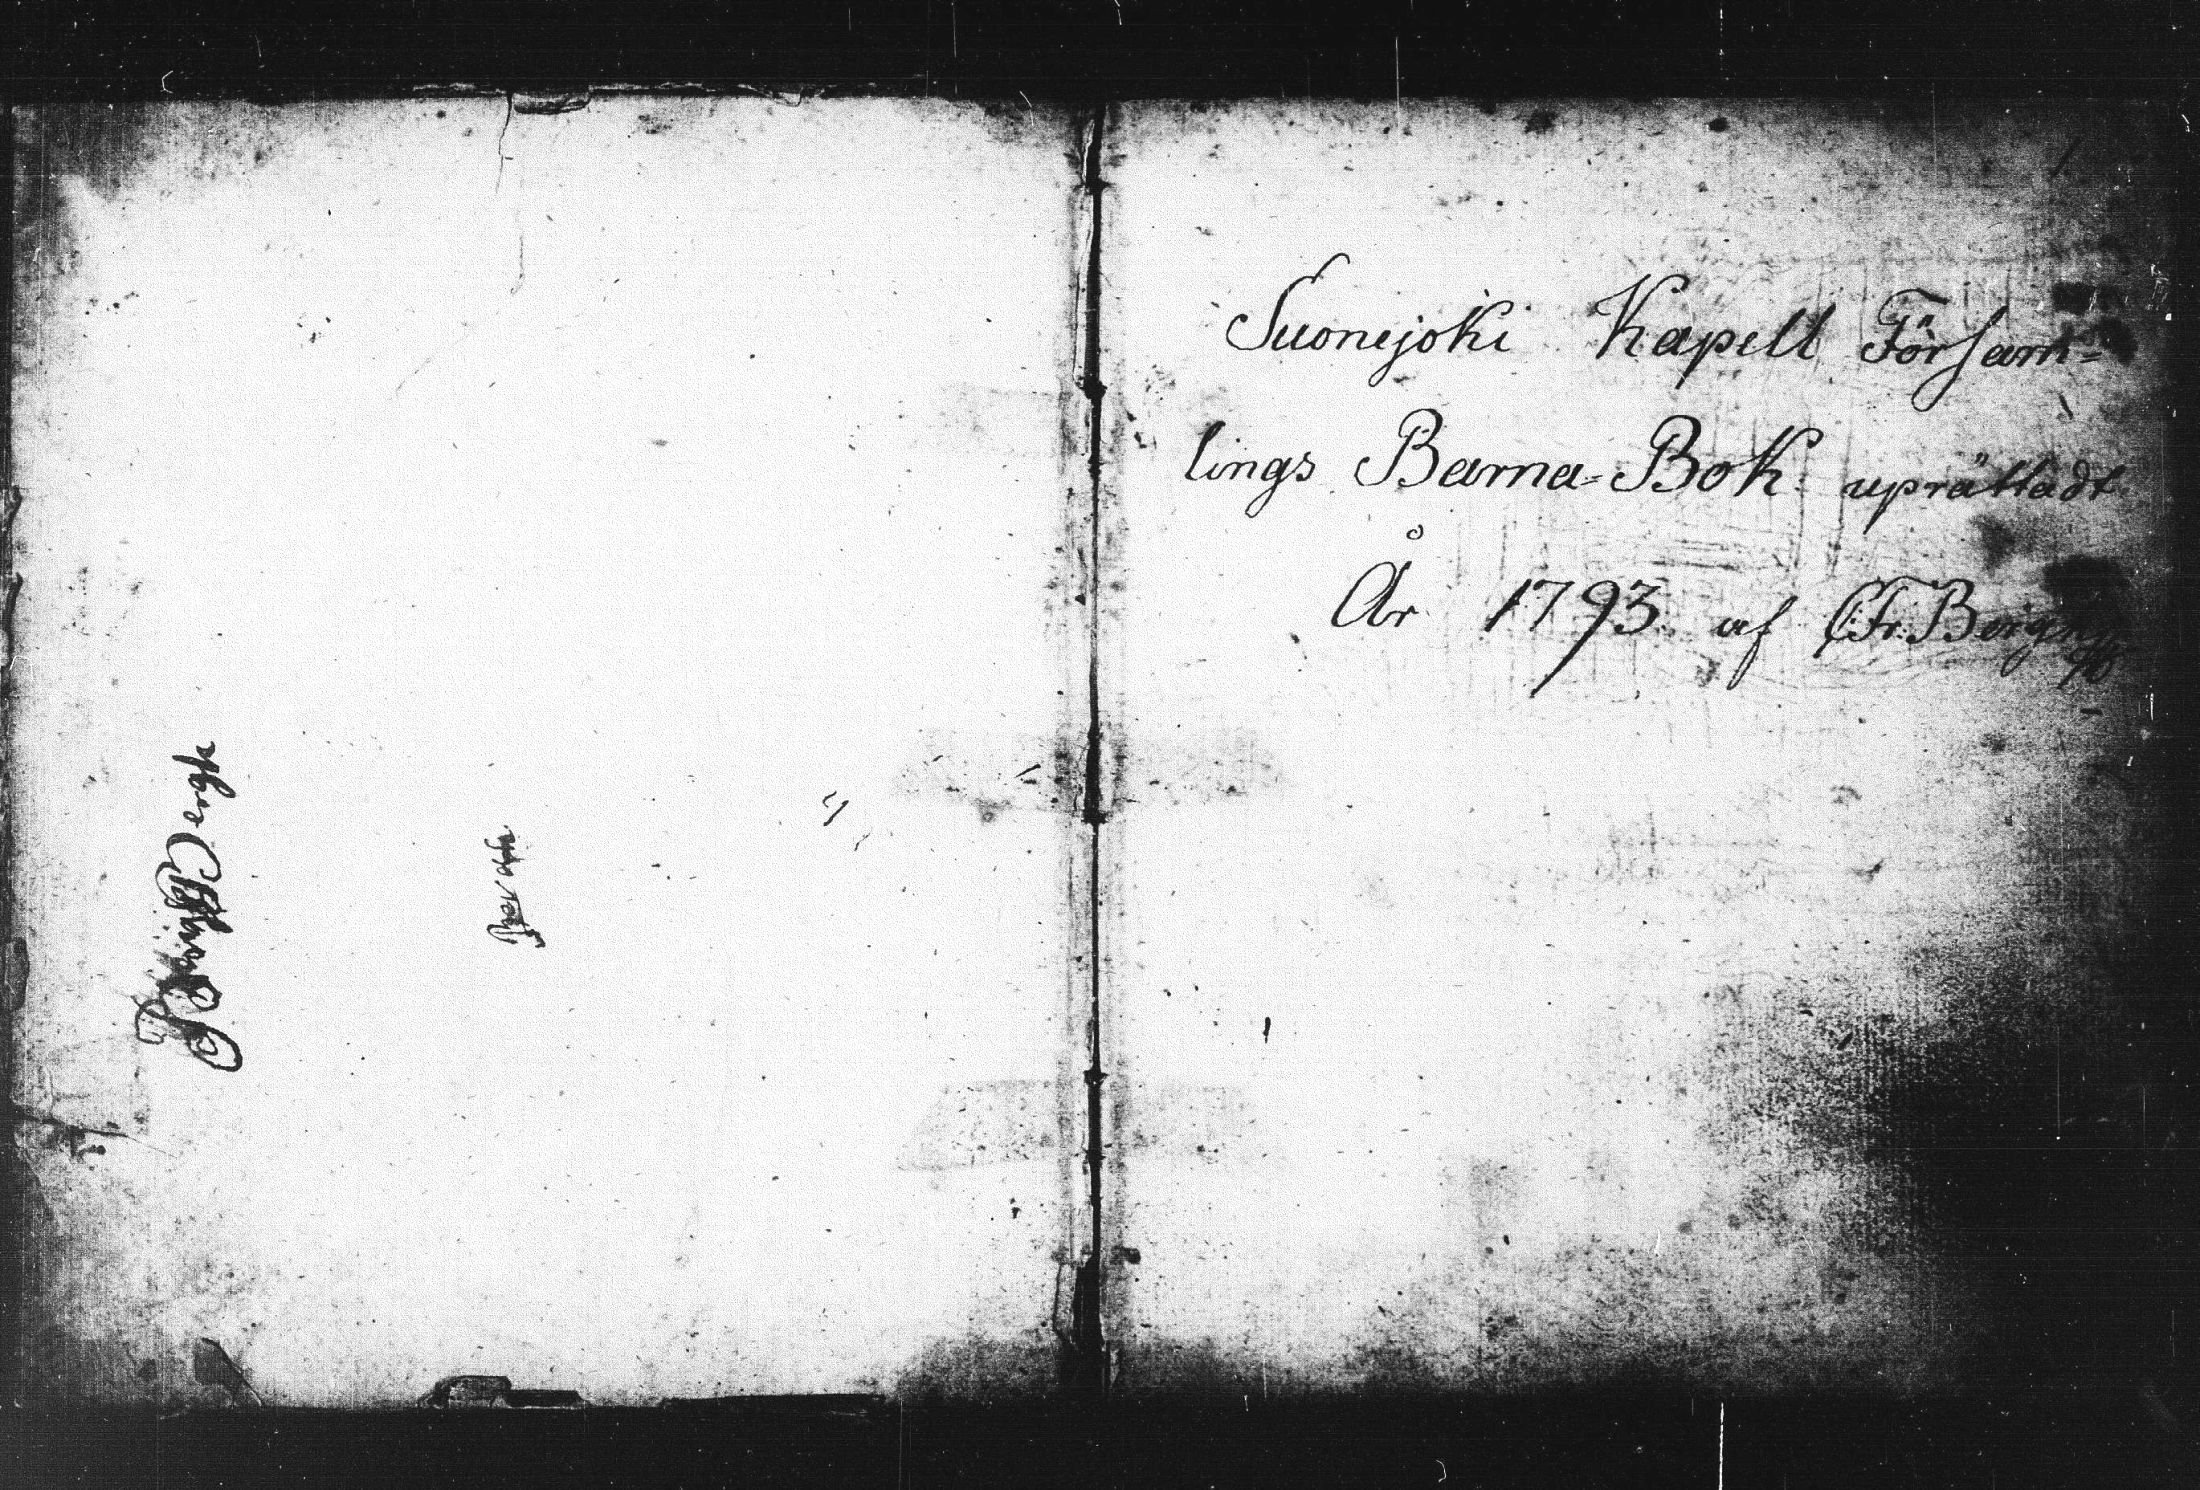 Suonejoki Kapell Försam-
lings Barna-Bok uprättadt
År 1793 af CFr: Bergh